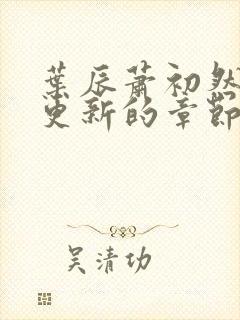 葉辰蕭初然
更新的章節
吴清功